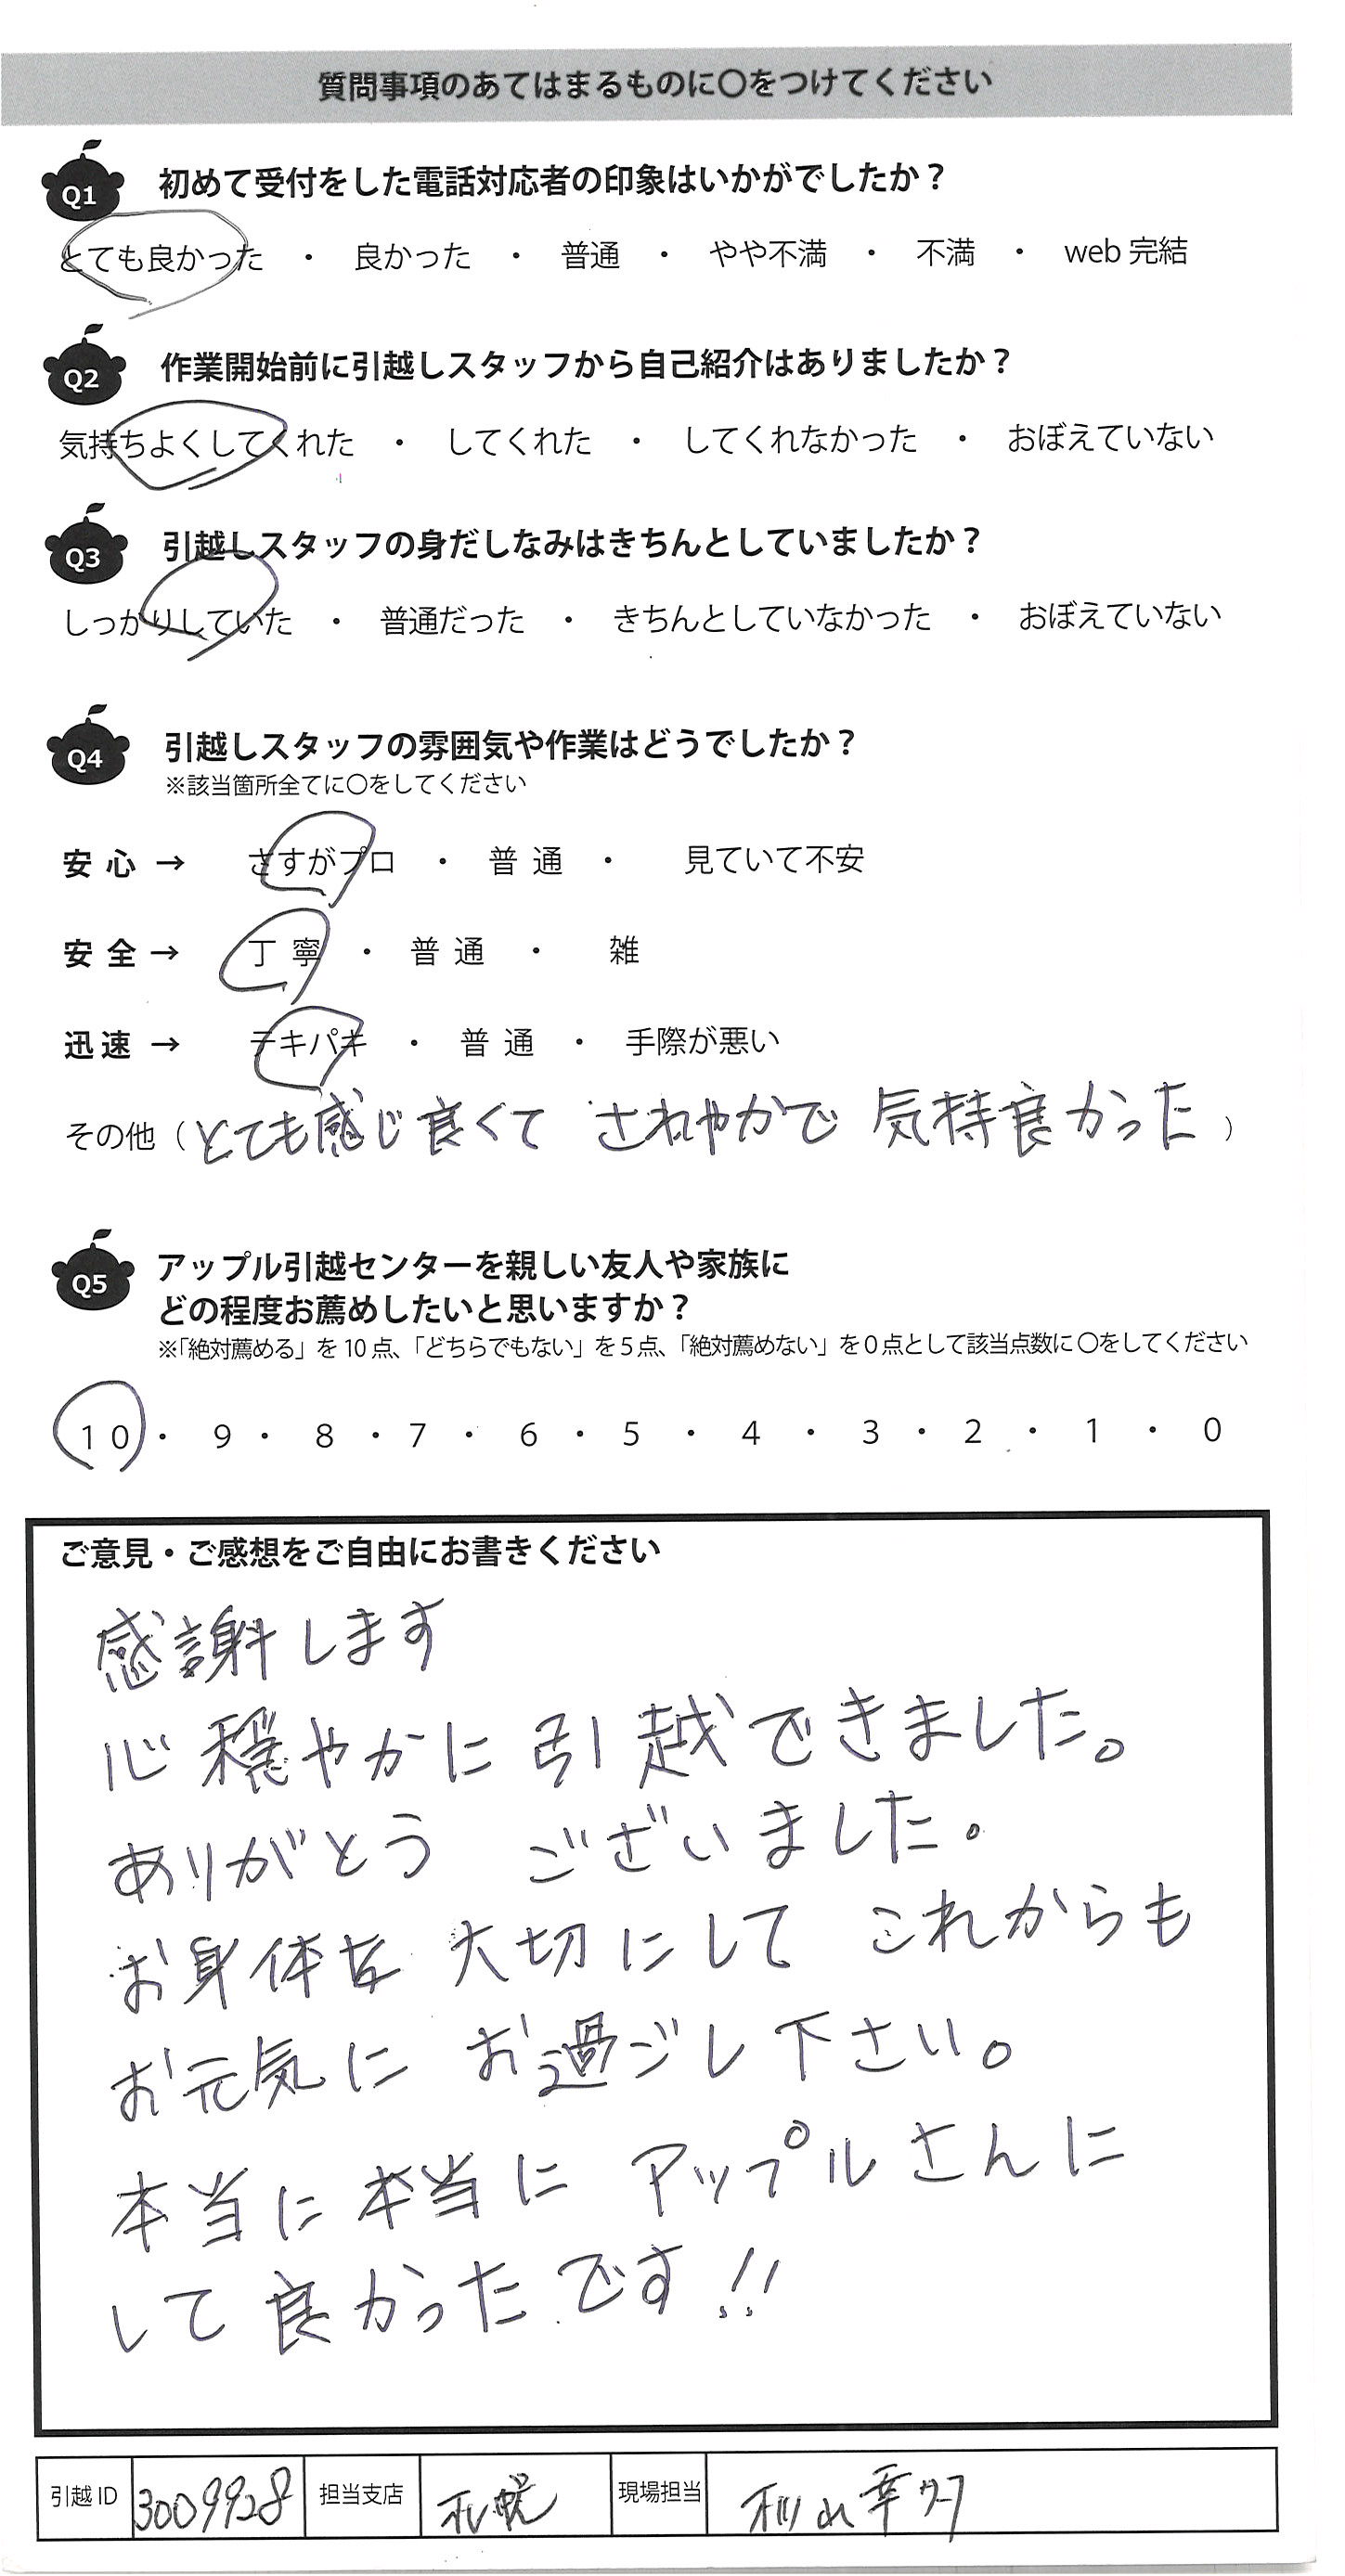 質問事項のあてはまるものに〇をつけてください
Q1 初めて受付をした電話対応者の印象はいかがでしたか？
とても良かった ・ 良かった ・ 普通 ・ やや不満 ・ 不満 ・ web 完結
Q2 作業開始前に引越しスタッフから自己紹介はありましたか？
気持ちよくしてくれた ・ してくれた ・ してくれなかった ・ おぼえていない
Q3 引越しスタッフの身だしなみはきちんとしていましたか？
しっかりしていた ・ 普通だった ・ きちんとしていなかった ・ おぼえていない
Q4 引越しスタッフの雰囲気や作業はどうでしたか？
※該当箇所全てに〇をしてください
安心 → さすがプロ ・ 普通 ・ 見ていて不安
安全 → 丁寧 ・ 普通 ・ 雑
迅速 → テキパキ ・ 普通 ・ 手際が悪い
その他（とても感じ良くて さわやかで 気持良かった）
Q5 アップル引越センターを親しい友人や家族に
どの程度お薦めしたいと思いますか？
※「絶対薦める」を 10 点、「どちらでもない」を 5 点、「絶対薦めない」を 0 点として該当点数に 〇をしてください
10 ・ 9 ・ 8 ・ 7 ・ 6 ・ 5 ・ 4 ・ 3 ・ 2 ・ 1 ・ 0
ご意見・ご感想をご自由にお書きください
感謝します
心穏やかに引越できました。
ありがとう ございました。
お身体を大切にして これからも
お元気に お過ごし下さい。
本当に本当に アップルさんに
して良かったです!!
引越 ID 3009928 担当支店 札幌 現場担当